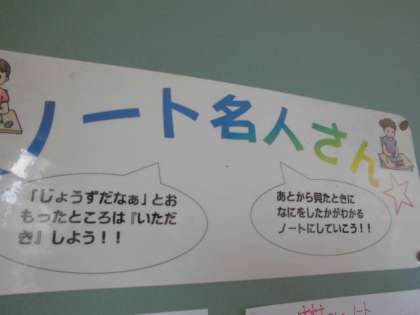 ノート名人さん
「じょうずだなぁ」とお
もったところは『いただ
き』しよう！！
あとから見たときに
なにをしたかがわかる
ノートにしていこう！！
ノート